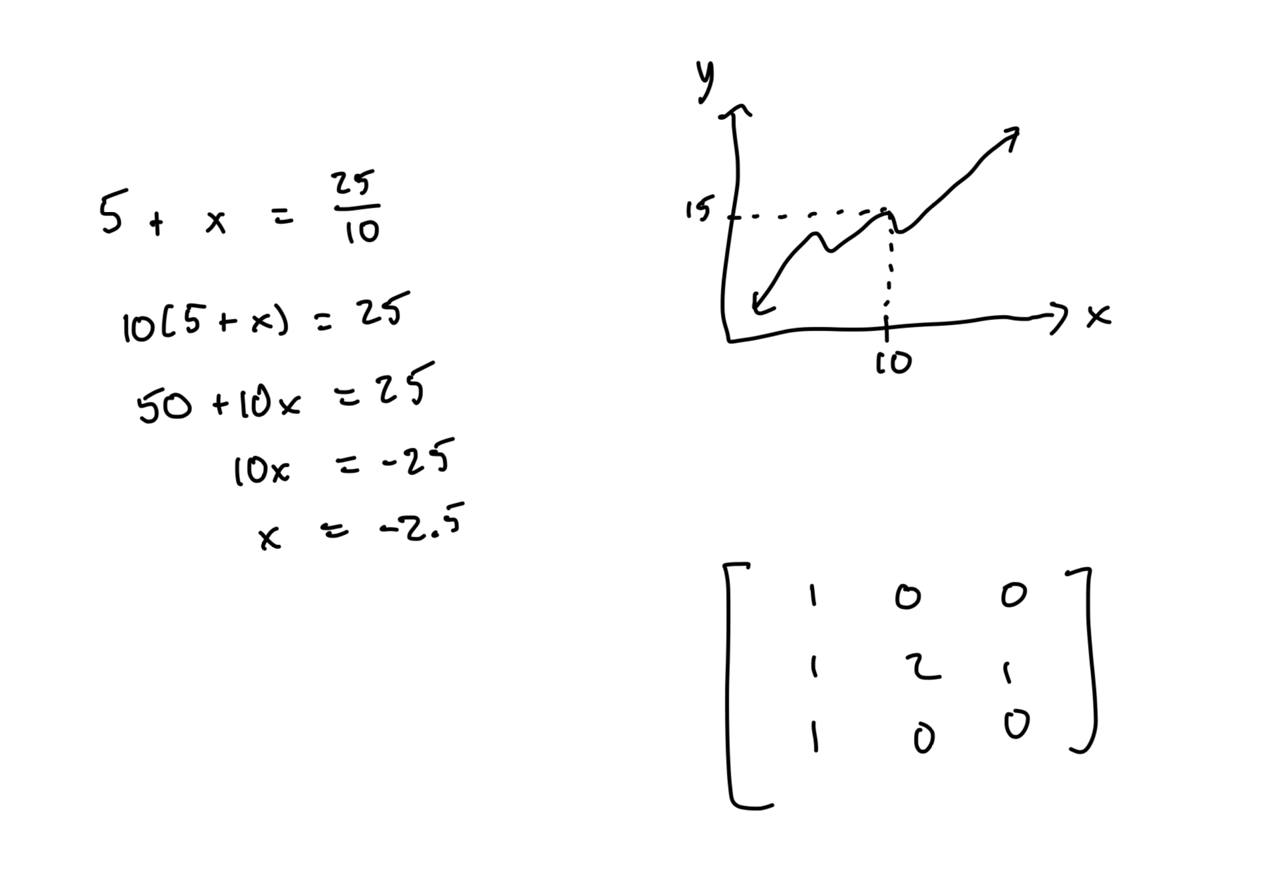 5 + x = 25/10
10(5 + x) = 25
50 + 10x = 25
10x = -25
x = -2.5
y
15
x
10
1 0 0
1 2 1
1 0 0